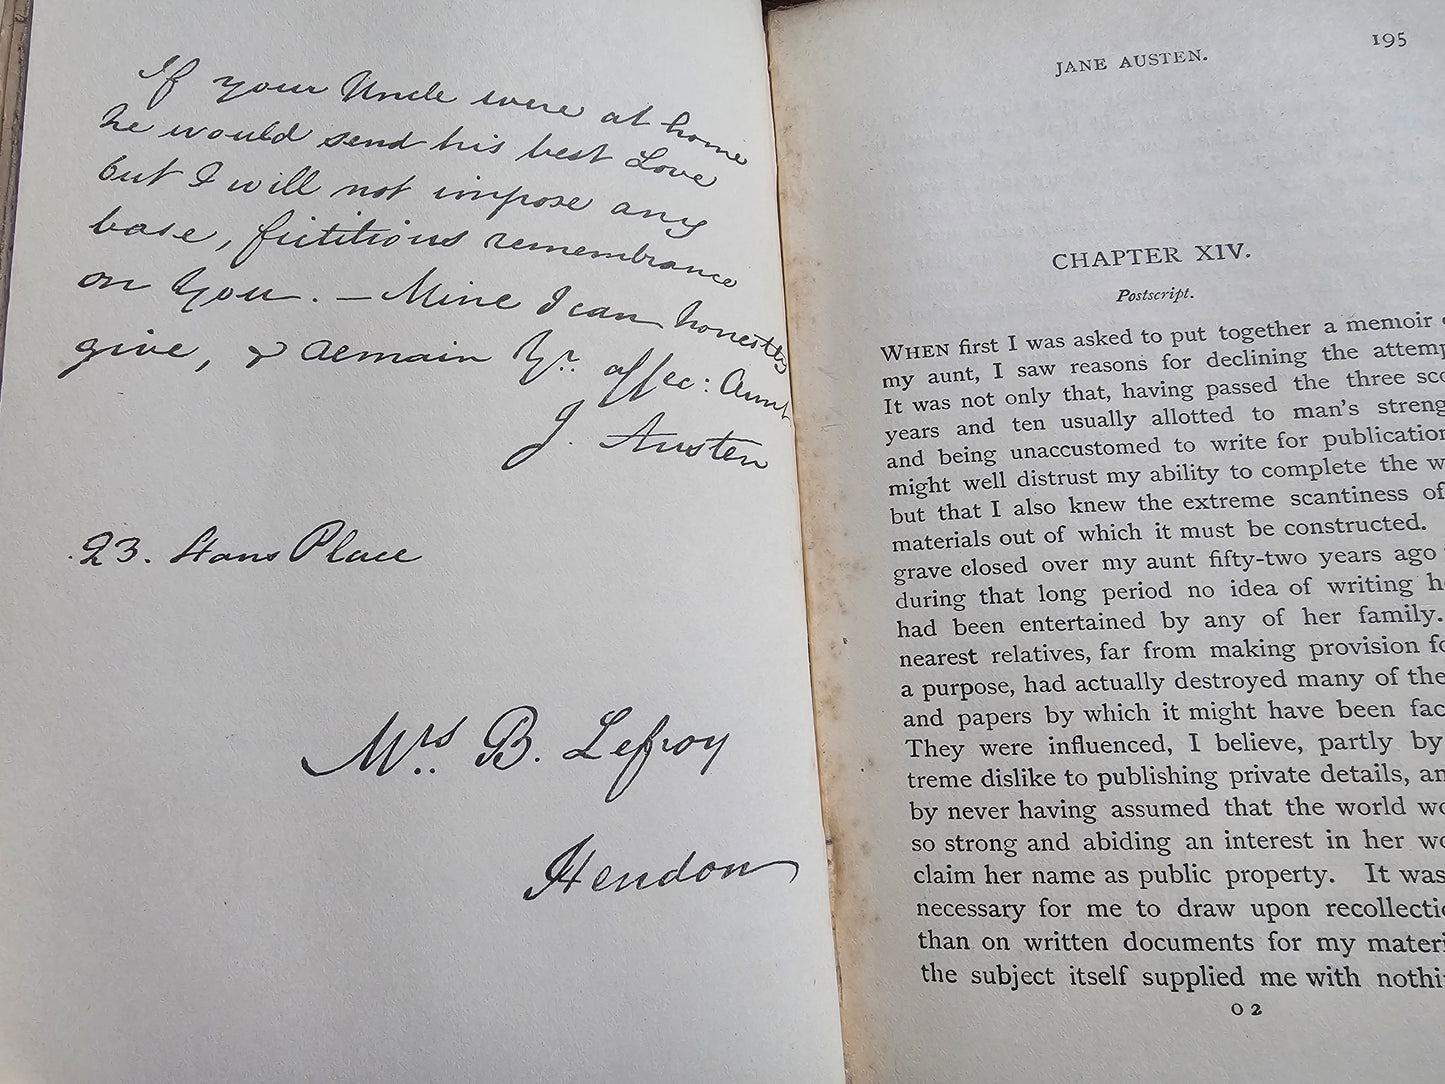 If your Uncle were at home
he would send his best Love
but I will not impose any
base, fictitious remembrance
on You. — Mine I can honestly
give, & remain Yr. affec: Aunt
J. Austen
23. Hans Place
Mrs. B. Lefroy
Hendon
JANE AUSTEN.
195
CHAPTER XIV.
Postscript.
WHEN first I was asked to put together a memoir
my aunt, I saw reasons for declining the attemp
It was not only that, having passed the three sco
years and ten usually allotted to man's streng
and being unaccustomed to write for publication
might well distrust my ability to complete the w
but that I also knew the extreme scantiness of
materials out of which it must be constructed.
grave closed over my aunt fifty-two years ago
during that long period no idea of writing h
had been entertained by any of her family.
nearest relatives, far from making provision fo
a purpose, had actually destroyed many of the
and papers by which it might have been fac
They were influenced, I believe, partly by
treme dislike to publishing private details, an
by never having assumed that the world wo
so strong and abiding an interest in her wo
claim her name as public property. It was
necessary for me to draw upon recollectio
than on written documents for my materi
the subject itself supplied me with nothi
O 2